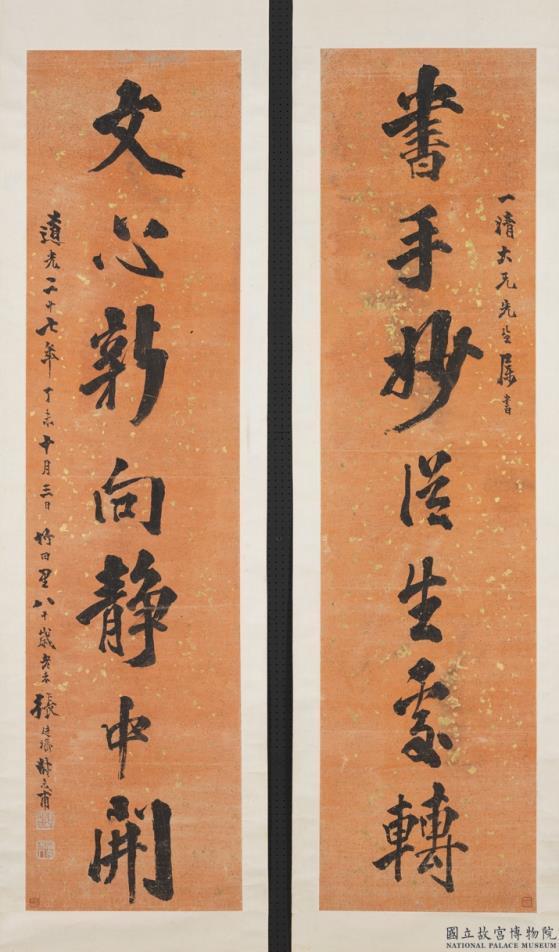 一清大兄先生屬書
書手妙從生處轉
文心新向靜中開
道光二十七年丁未十月三日竹田里八十歲老張廷濟叔未甫
國立故宮博物院
NATIONAL PALACE MUSEUM